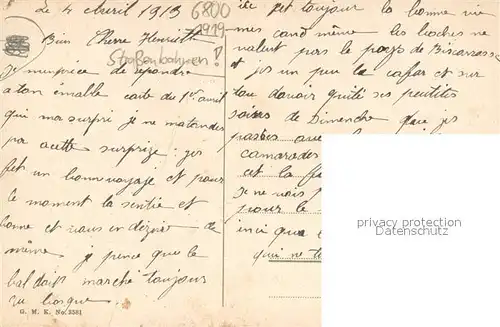 Le 4 Avril 1919
6800
1919
Straßenbahnen!
Bien Cherre Henriette
Je m'emprèce de repondre
a ton emable carte du 1er avril
qui ma surpri je ne matendes
pas a cette surprize: jes
fet un bon voyage et pour
le moment la sentie et
bonne et vous en dezire de
même je pence que le
bal doit marché toujour
au Ciosque
G. M. K. No. 3381
ici fet toujour la bonne vie
mes cand même les
valent pas le pays de Biscarrosse
et jes un peu la cafar et sur
tou davoir quité ses petites
soires de Dimenche que jes
passés avec
camarades
cet la
Je ne vois
pour le
inci que
qui ne
privacy protection
www.ansichtskartenversand.com